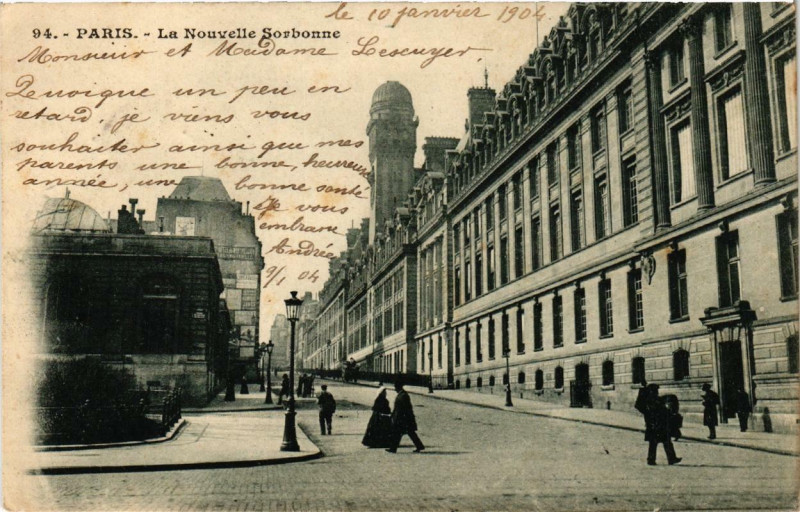 le 10 janvier 1904
94. - PARIS. - La Nouvelle Sorbonne
Monsieur et Madame Lescuyer
Quoique un peu en
retard, je viens vous
souhaiter ainsi que mes
parents une bonne, heureuse
année, une bonne santé
Je vous
embrasse
Andrée
9/1 04